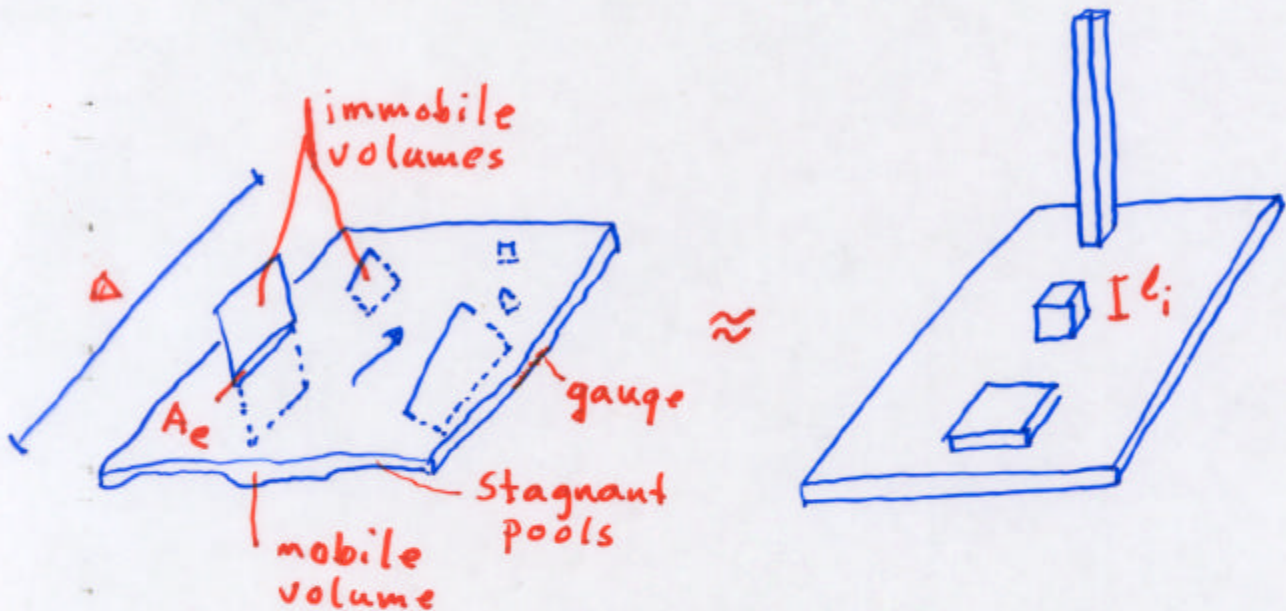 immobile
volumes
Δ
≈
I ℓi
Ae
gauge
Stagnant
pools
mobile
volume